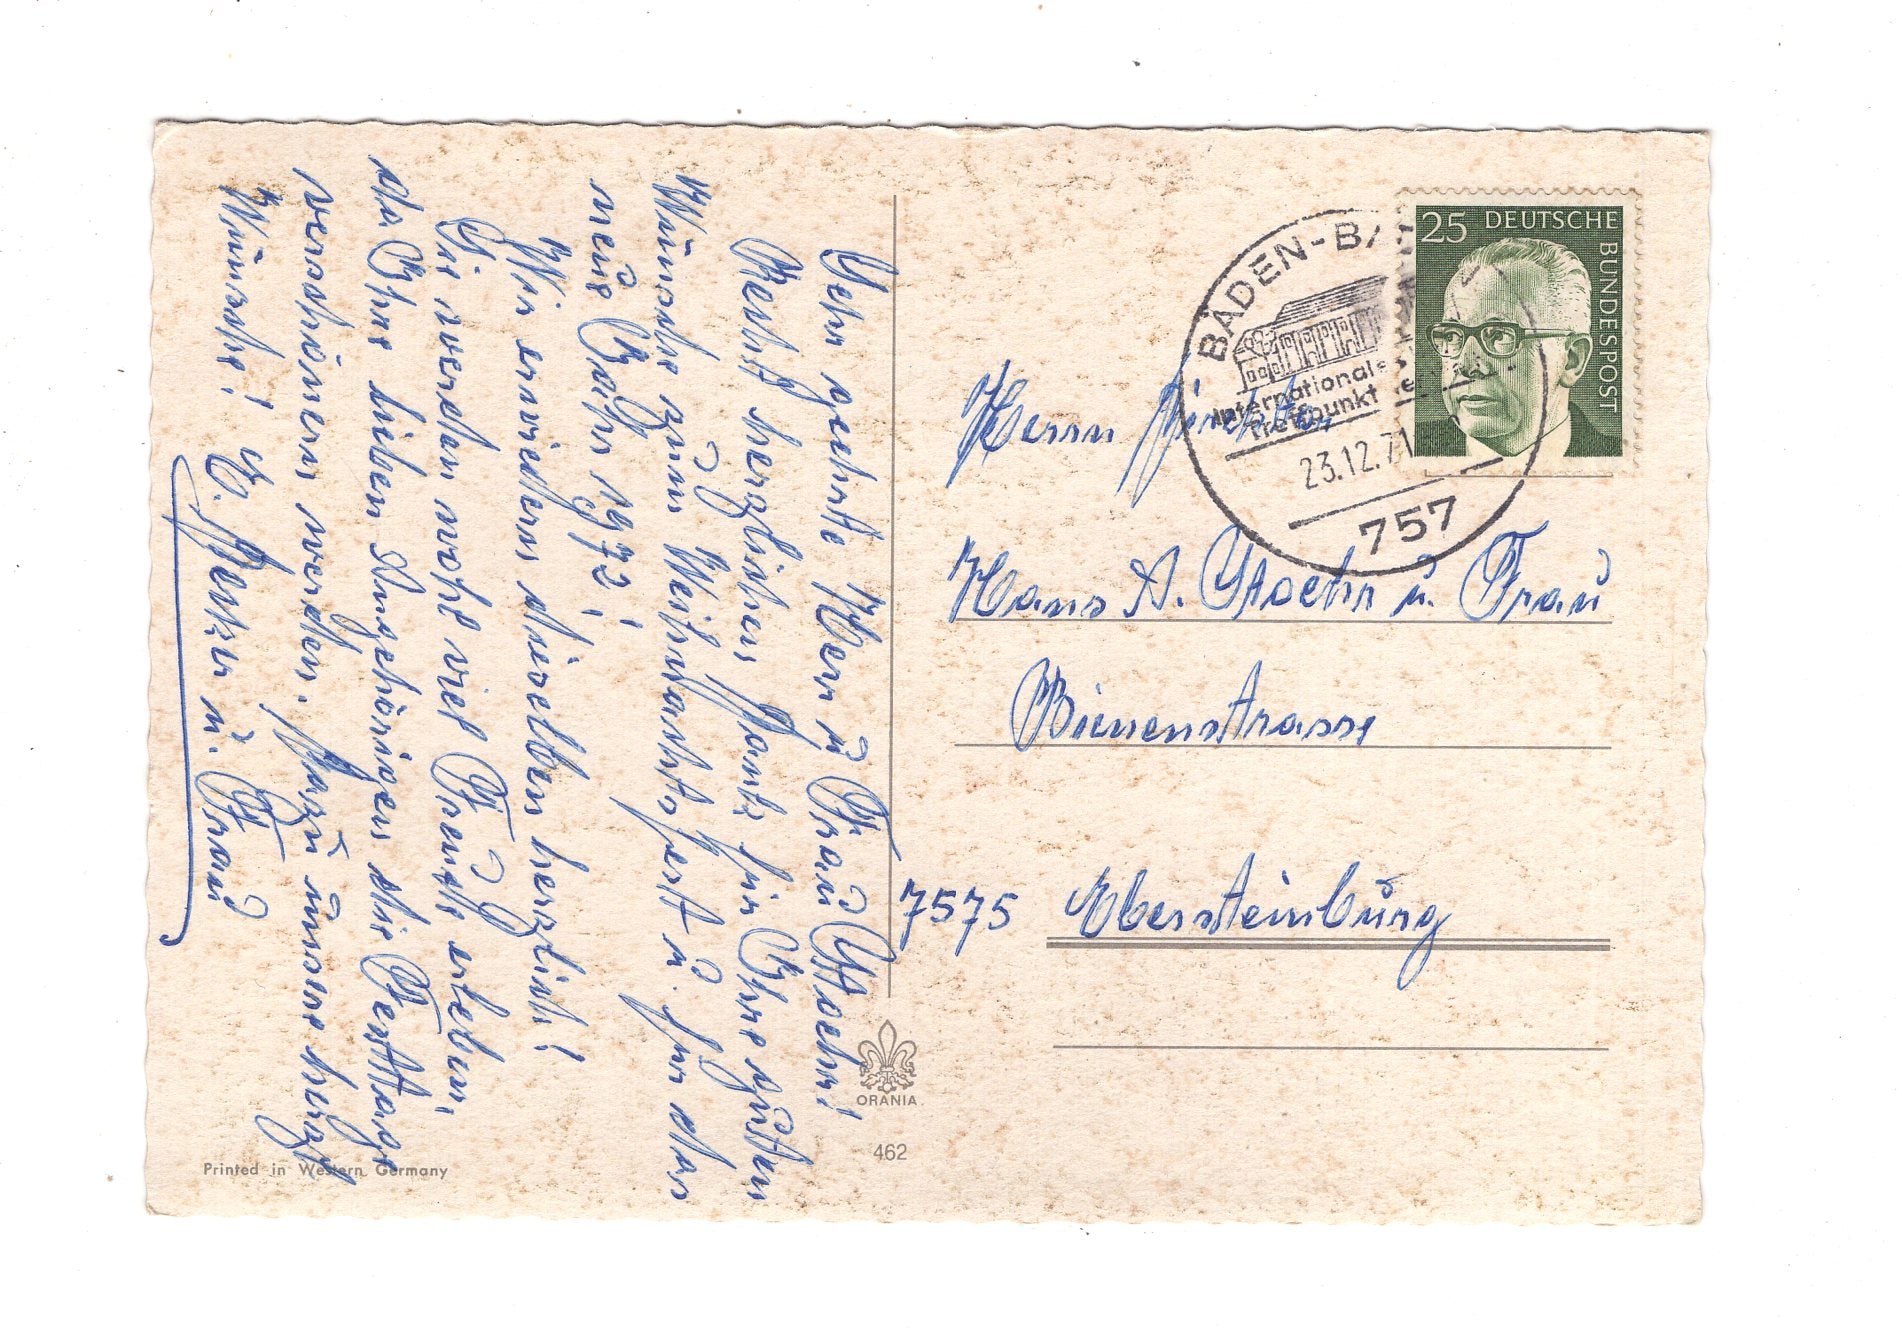 Sehr geehrte Herr u. Frau Stoehr!
Recht herzlichen Dank für Ihre guten
Wünsche zum Weihnachtsfest u. für das
neue Jahr 1972!
Wir erwiedern dieselben herzlich!
Sie werden wohl viel Freude erleben,
da Ihre lieben Angehörigen die Festtage
verschönern werden. Dazu unsere herzl.
Wünsche! E. u. Frau
Printed in Western Germany
ORANIA
462
25 DEUTSCHE
BUNDESPOST
BADEN-BA
International
Treffpunkt
23.12.71
757
Herrn
Hans A. Stoehr u. Frau
Bienenstrasse
7575 Ebersteinburg